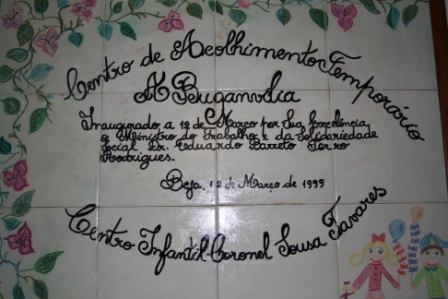 Centro de Acolhimento Temporário
"A Buganvília"
Inaugurado a 12 de Março por Sua Excelência
o Ministro do Trabalho e da Solidariedade
Social Dr. Eduardo Barreto Ferro
Rodrigues.
Beja, 12 de Março de 1999
Centro Infantil Coronel Sousa Tavares